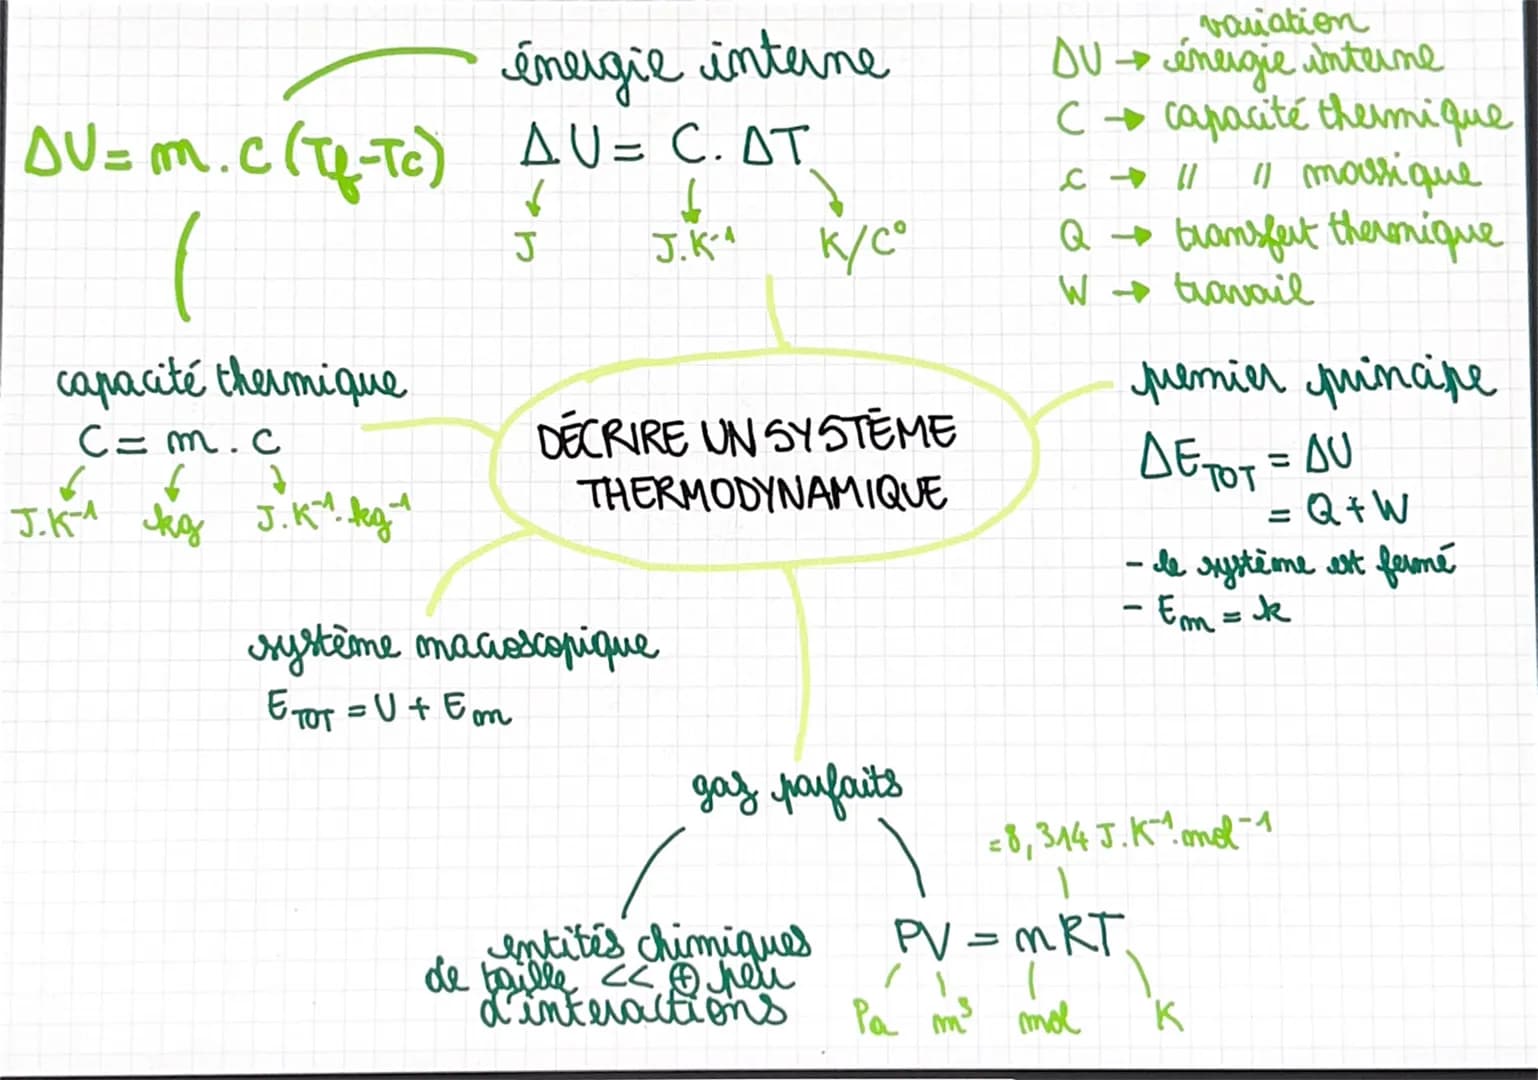 énergie interne
ΔU = m . c (Tf - Tc)
ΔU = C . ΔT
J
J.K⁻¹
K/C°
variation
ΔU → énergie interne
C → capacité thermique
c → // // massique
Q → transfert thermique
W → travail
capacité thermique
C = m . c
J.K⁻¹
kg
J.K⁻¹.kg⁻¹
DÉCRIRE UN SYSTÈME
THERMODYNAMIQUE
premier principe
ΔE_TOT = ΔU
= Q + W
- le système est fermé
- Em = k
système macroscopique
E_TOT = U + Em
gaz parfaits
entités chimiques
de taille << ⊕ peu
d'interactions
= 8,314 J.K⁻¹.mol⁻¹
PV = nRT
Pa
m³
mol
K